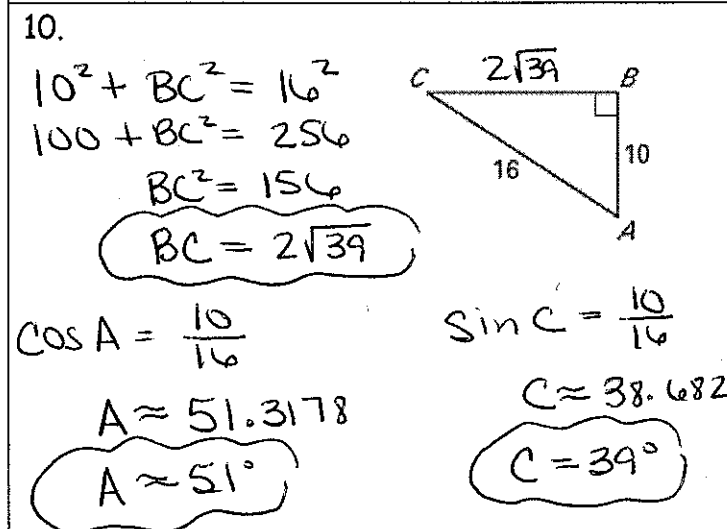 10.
10² + BC² = 16²
100 + BC² = 256
BC² = 156
BC = 2√39
C 2√39 B
16 10
A
cos A = 10/16
A ≈ 51.3178
A ≈ 51°
sin C = 10/16
C ≈ 38.682
C = 39°